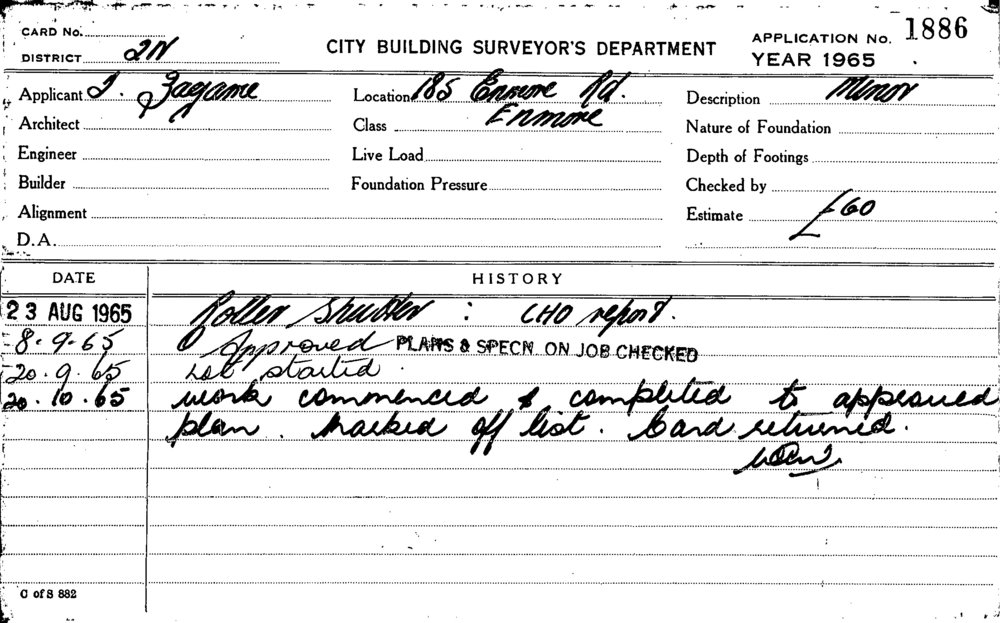 CARD No.
DISTRICT 2N
CITY BUILDING SURVEYOR'S DEPARTMENT
APPLICATION No. 1886
YEAR 1965
Applicant J. Zagame
Location 185 Enmore Rd.
Enmore
Description Minor
Architect
Class
Nature of Foundation
Engineer
Live Load
Depth of Footings
Builder
Foundation Pressure
Checked by
Alignment
Estimate £60
D.A.
DATE HISTORY
23 AUG 1965 Roller Shutter : CHO report.
8.9.65 Approved PLANS & SPECN. ON JOB CHECKED
20.9.65 Not started.
20.10.65 work commenced & completed to approved
plan. Marked off list. Card returned.
C of S 882